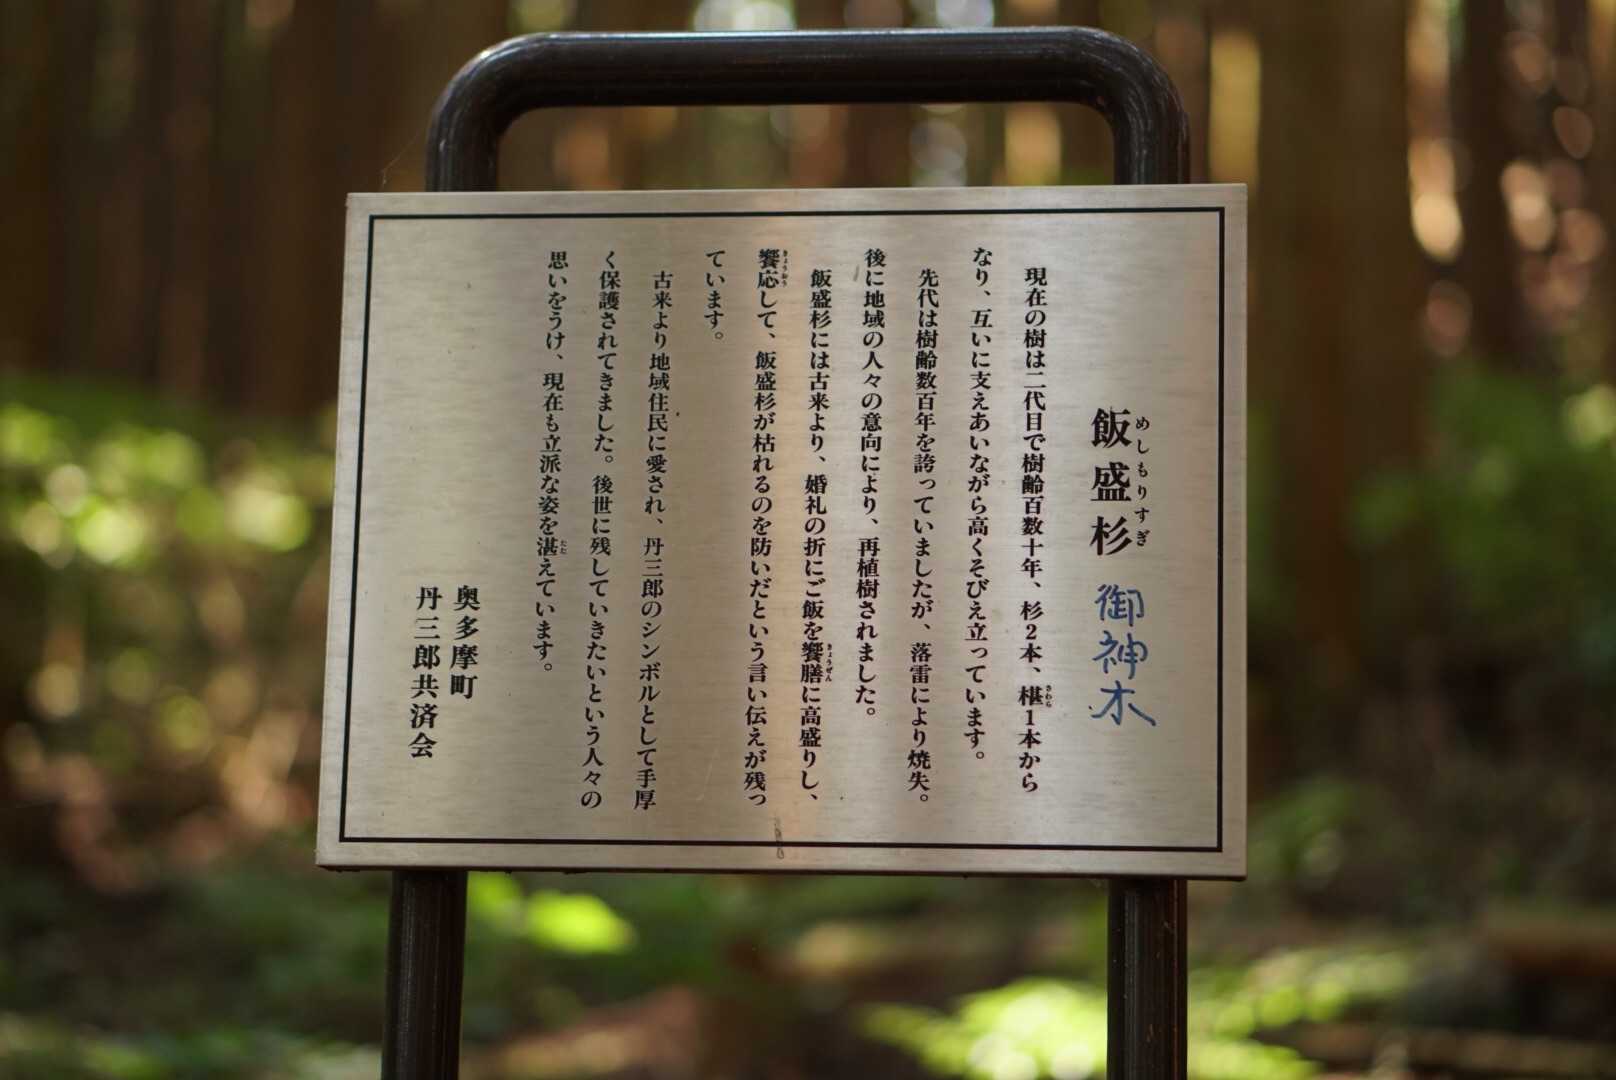 飯盛杉 御神木
めしもりすぎ
現在の樹は二代目で樹齢百数十年、杉2本、椹1本から
さわら
なり、互いに支えあいながら高くそびえ立っています。
先代は樹齢数百年を誇っていましたが、落雷により焼失。
後に地域の人々の意向により、再植樹されました。
飯盛杉には古来より、婚礼の折にご飯を饗膳に高盛りし、
きょうぜん
饗応して、飯盛杉が枯れるのを防いだという言い伝えが残っ
きょうおう
ています。
古来より地域住民に愛され、丹三郎のシンボルとして手厚
く保護されてきました。後世に残していきたいという人々の
思いをうけ、現在も立派な姿を湛えています。
たた
奥多摩町
丹三郎共済会